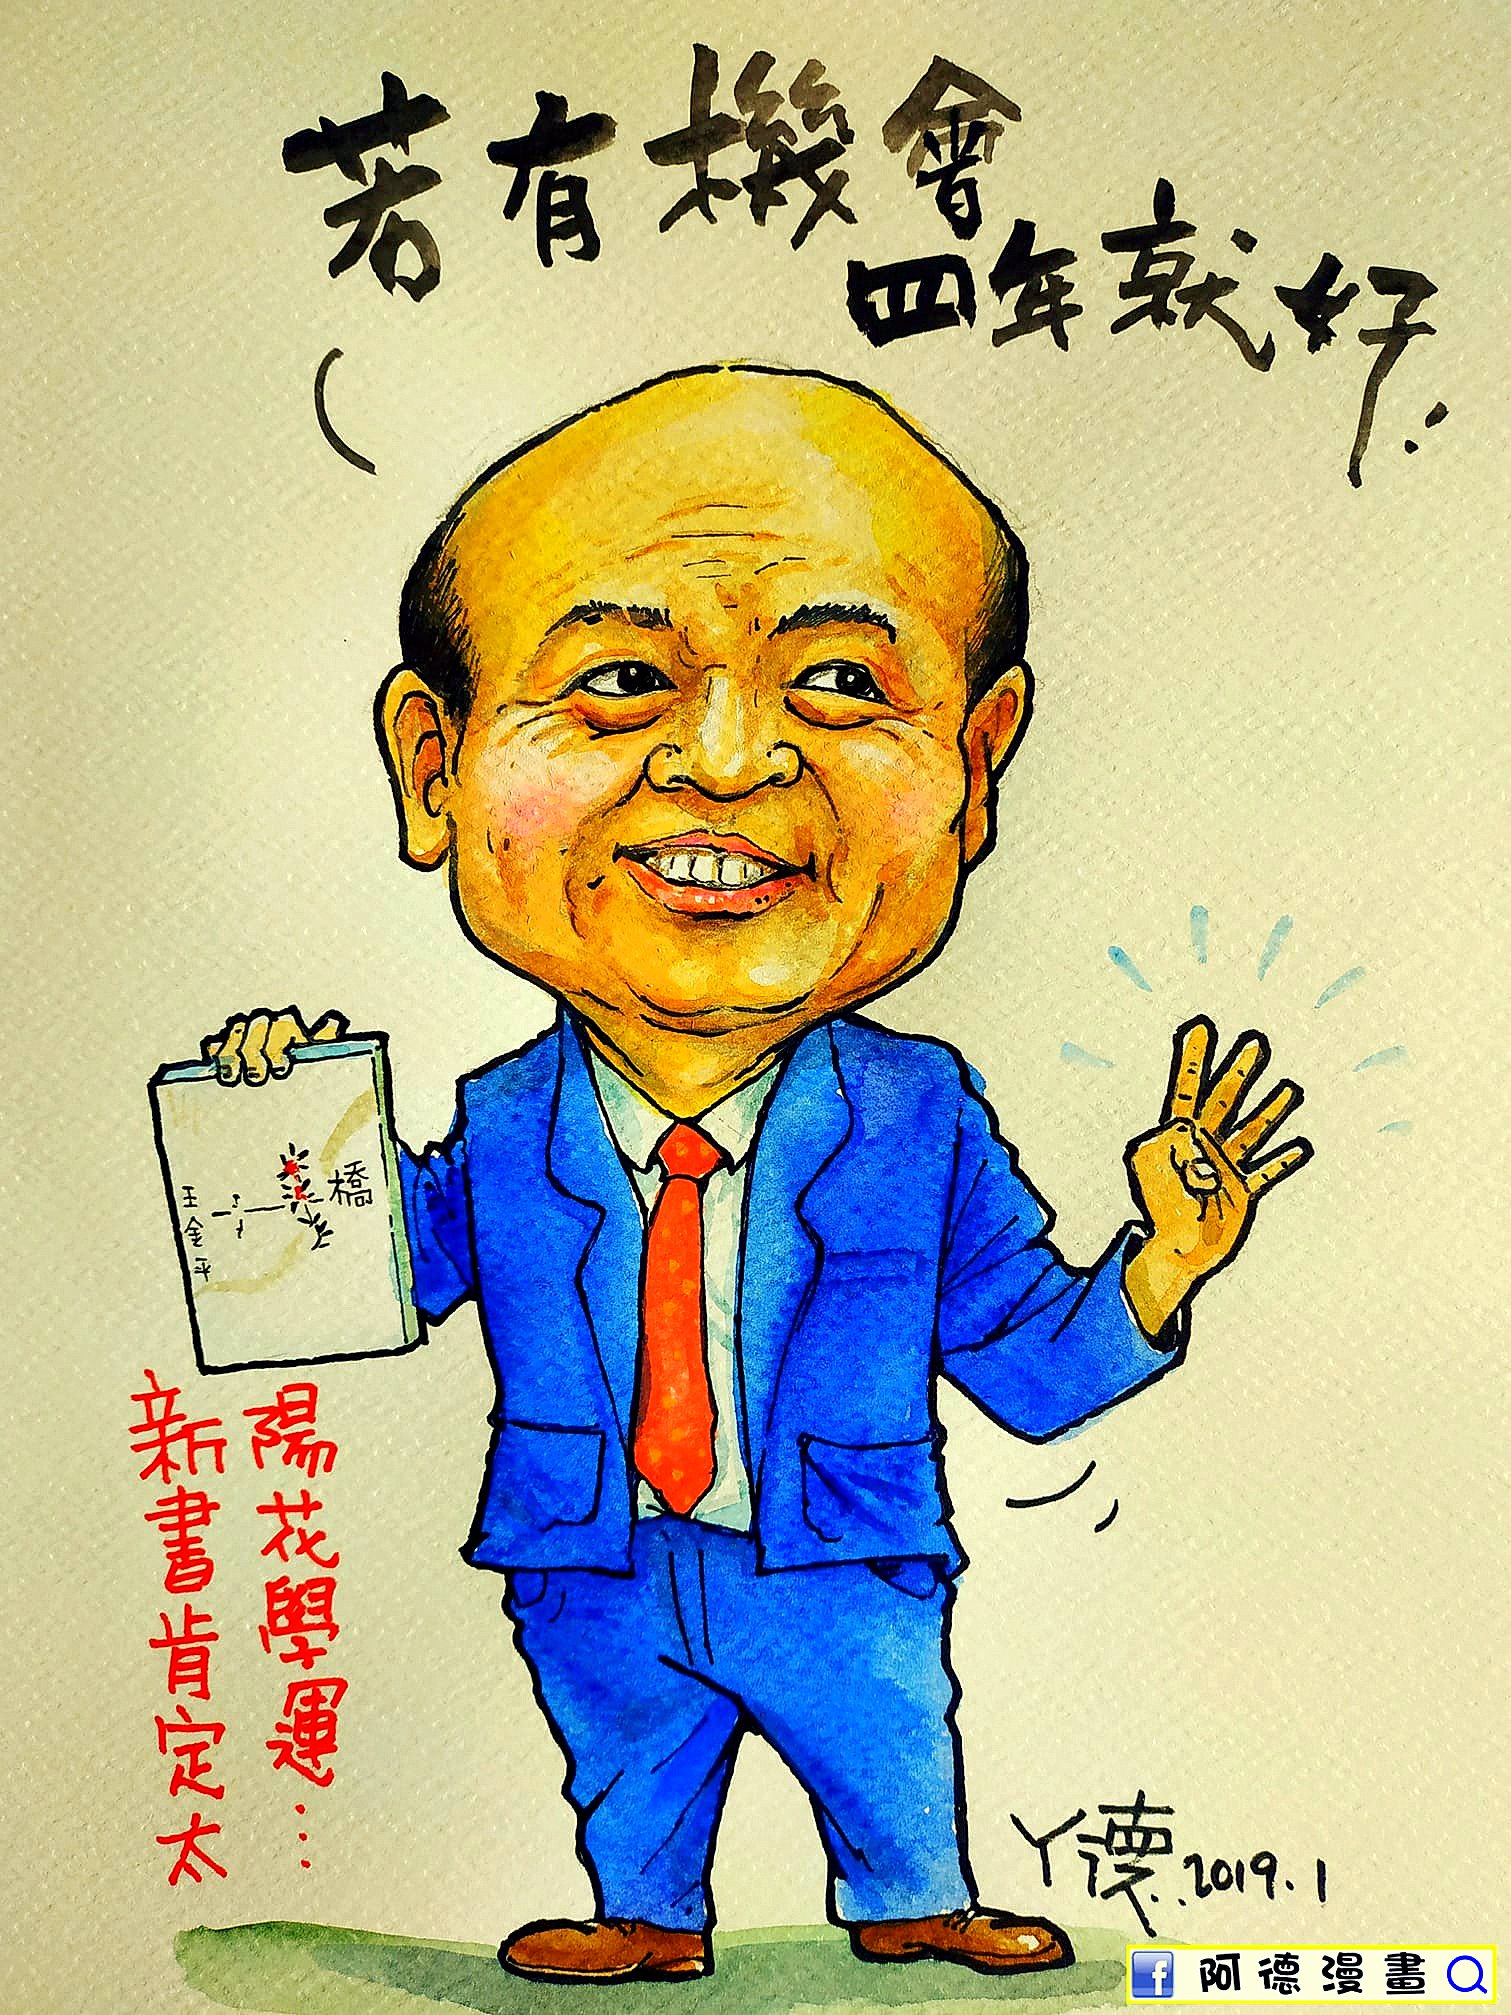 若有機會
四年就好
王金平
橋
新書肯定太
陽花學運
ㄚ德 2019.1
阿德漫畫